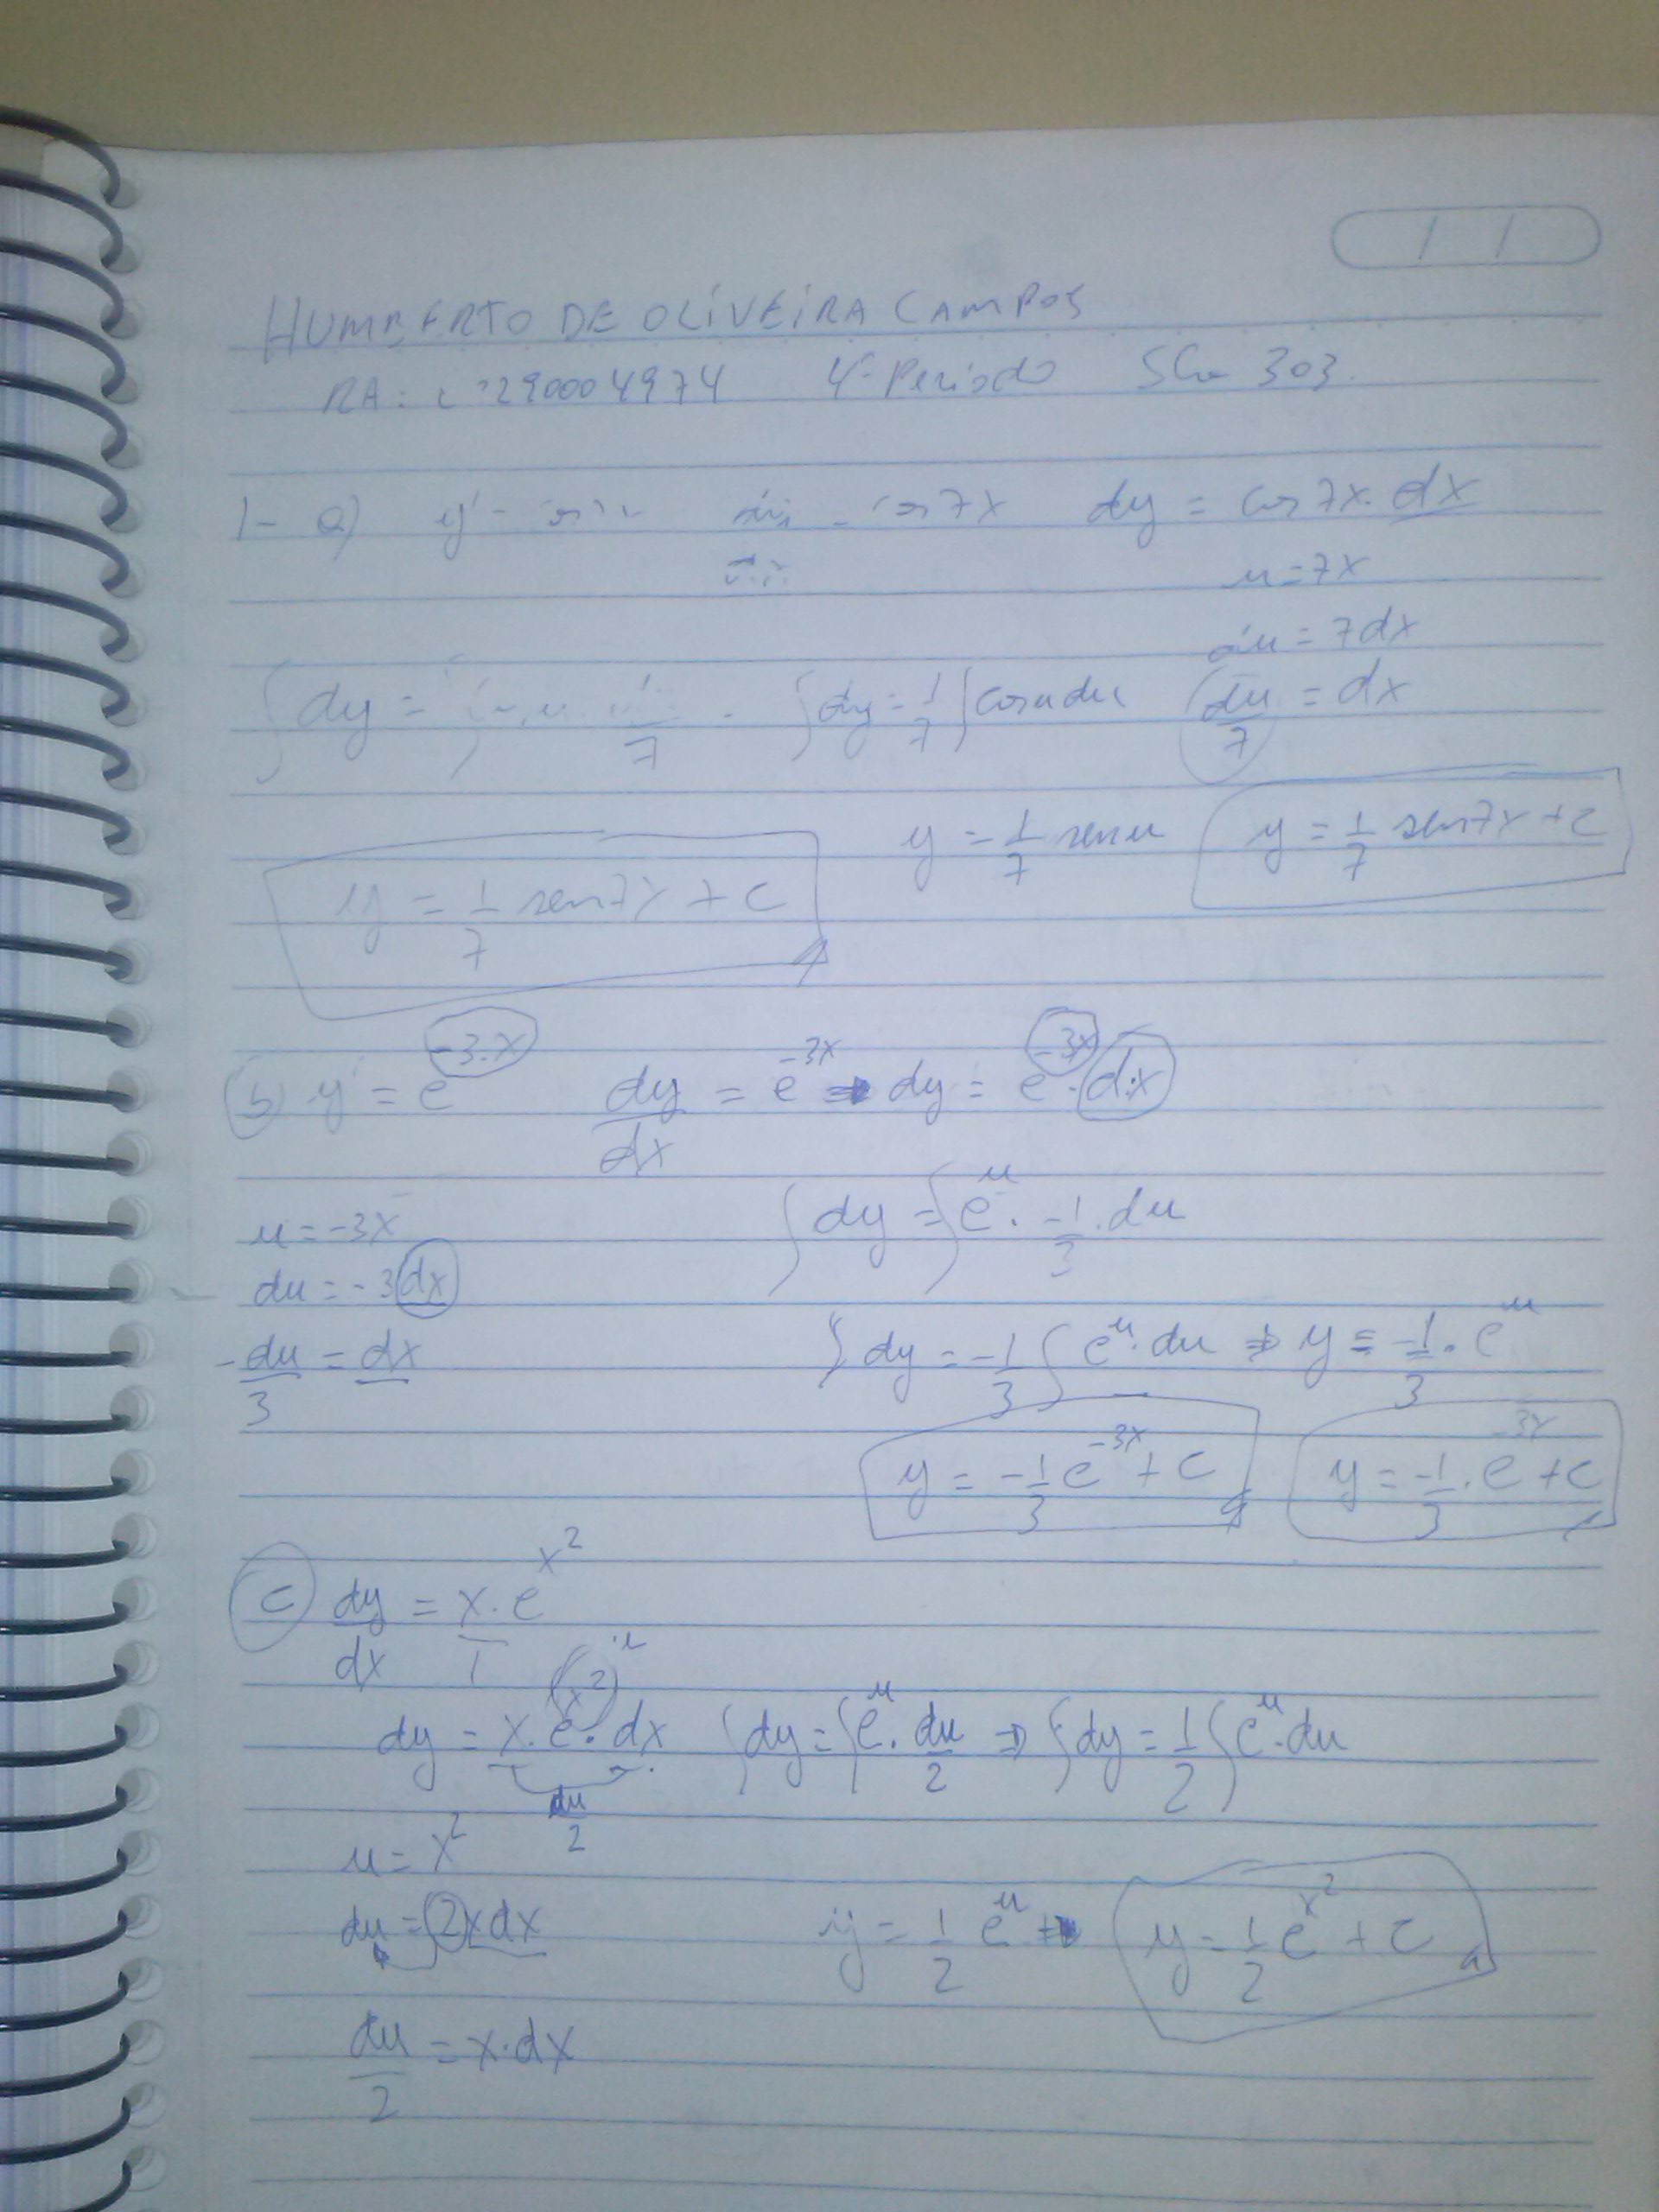 HUMBERTO DE OLIVEIRA CAMPOS
RA: 290004974 4º Período 303.
1- a) y' = cos7x dy = cos7x. dx
u = 7x
du = 7dx
∫dy = ∫ 7 ∫dy = 1/7 ∫cosu du du/7 = dx
y = 1/7 senu y = 1/7 sen7x + c
y = 1/7 sen7x + c
b) y' = e^-3.x dy/dx = e^-3x ⇒ dy = e^-3x . dx
u = -3x ∫dy = ∫e^u . -1/3 . du
du = -3dx
-du/3 = dx ∫dy = -1/3 ∫e^u . du ⇒ y = -1/3 . e^u
y = -1/3 e^-3x + c y = -1/3 . e^-3x + c
c) dy/dx = x/1 . e^x²
dy = x . e^(x²)^u . dx ∫dy = ∫e^u . du/2 ⇒ ∫dy = 1/2 ∫e^u . du
du/2
u = x²
du = 2xdx y = 1/2 e^u ⇒ y = 1/2 e^x² + c
du/2 = x . dx